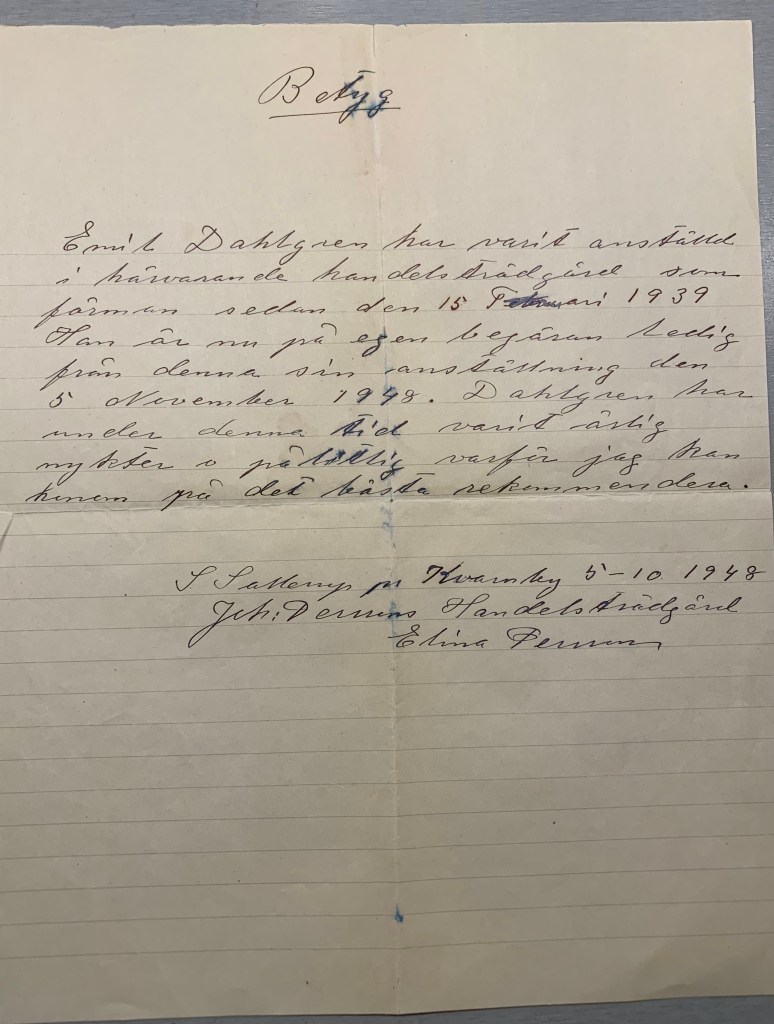 Betyg
Emil Dahlgren har varit anställd
i härvarande handelsträdgård som
förman sedan den 15 Februari 1939
Han är nu på egen begäran ledig
från denna sin anställning den
5 November 1948. Dahlgren har
under denna tid varit ärlig
nykter o pålitlig varför jag kan
honom på det bästa rekommendera.
S Sallerup pr Kvarnby 5-10. 1948
Joh: Perssons Handelsträdgård
Elina Persson